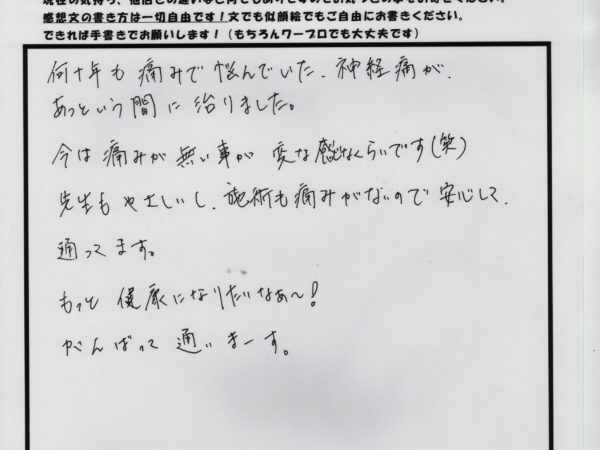 感想文の書き方は一切自由です！文でも似顔絵でもご自由にお書きください。
できれば手書きでお願いします！（もちろんワープロでも大丈夫です）
何十年も痛みで悩んでいた、神経痛が、
あっという間に治りました。
今は痛みが無い事が変な感じなくらいです(笑)
先生もやさしいし、施術も痛みがないので安心して、
通ってます。
もっと健康になりたいなぁ〜！
がんばって通いまーす。